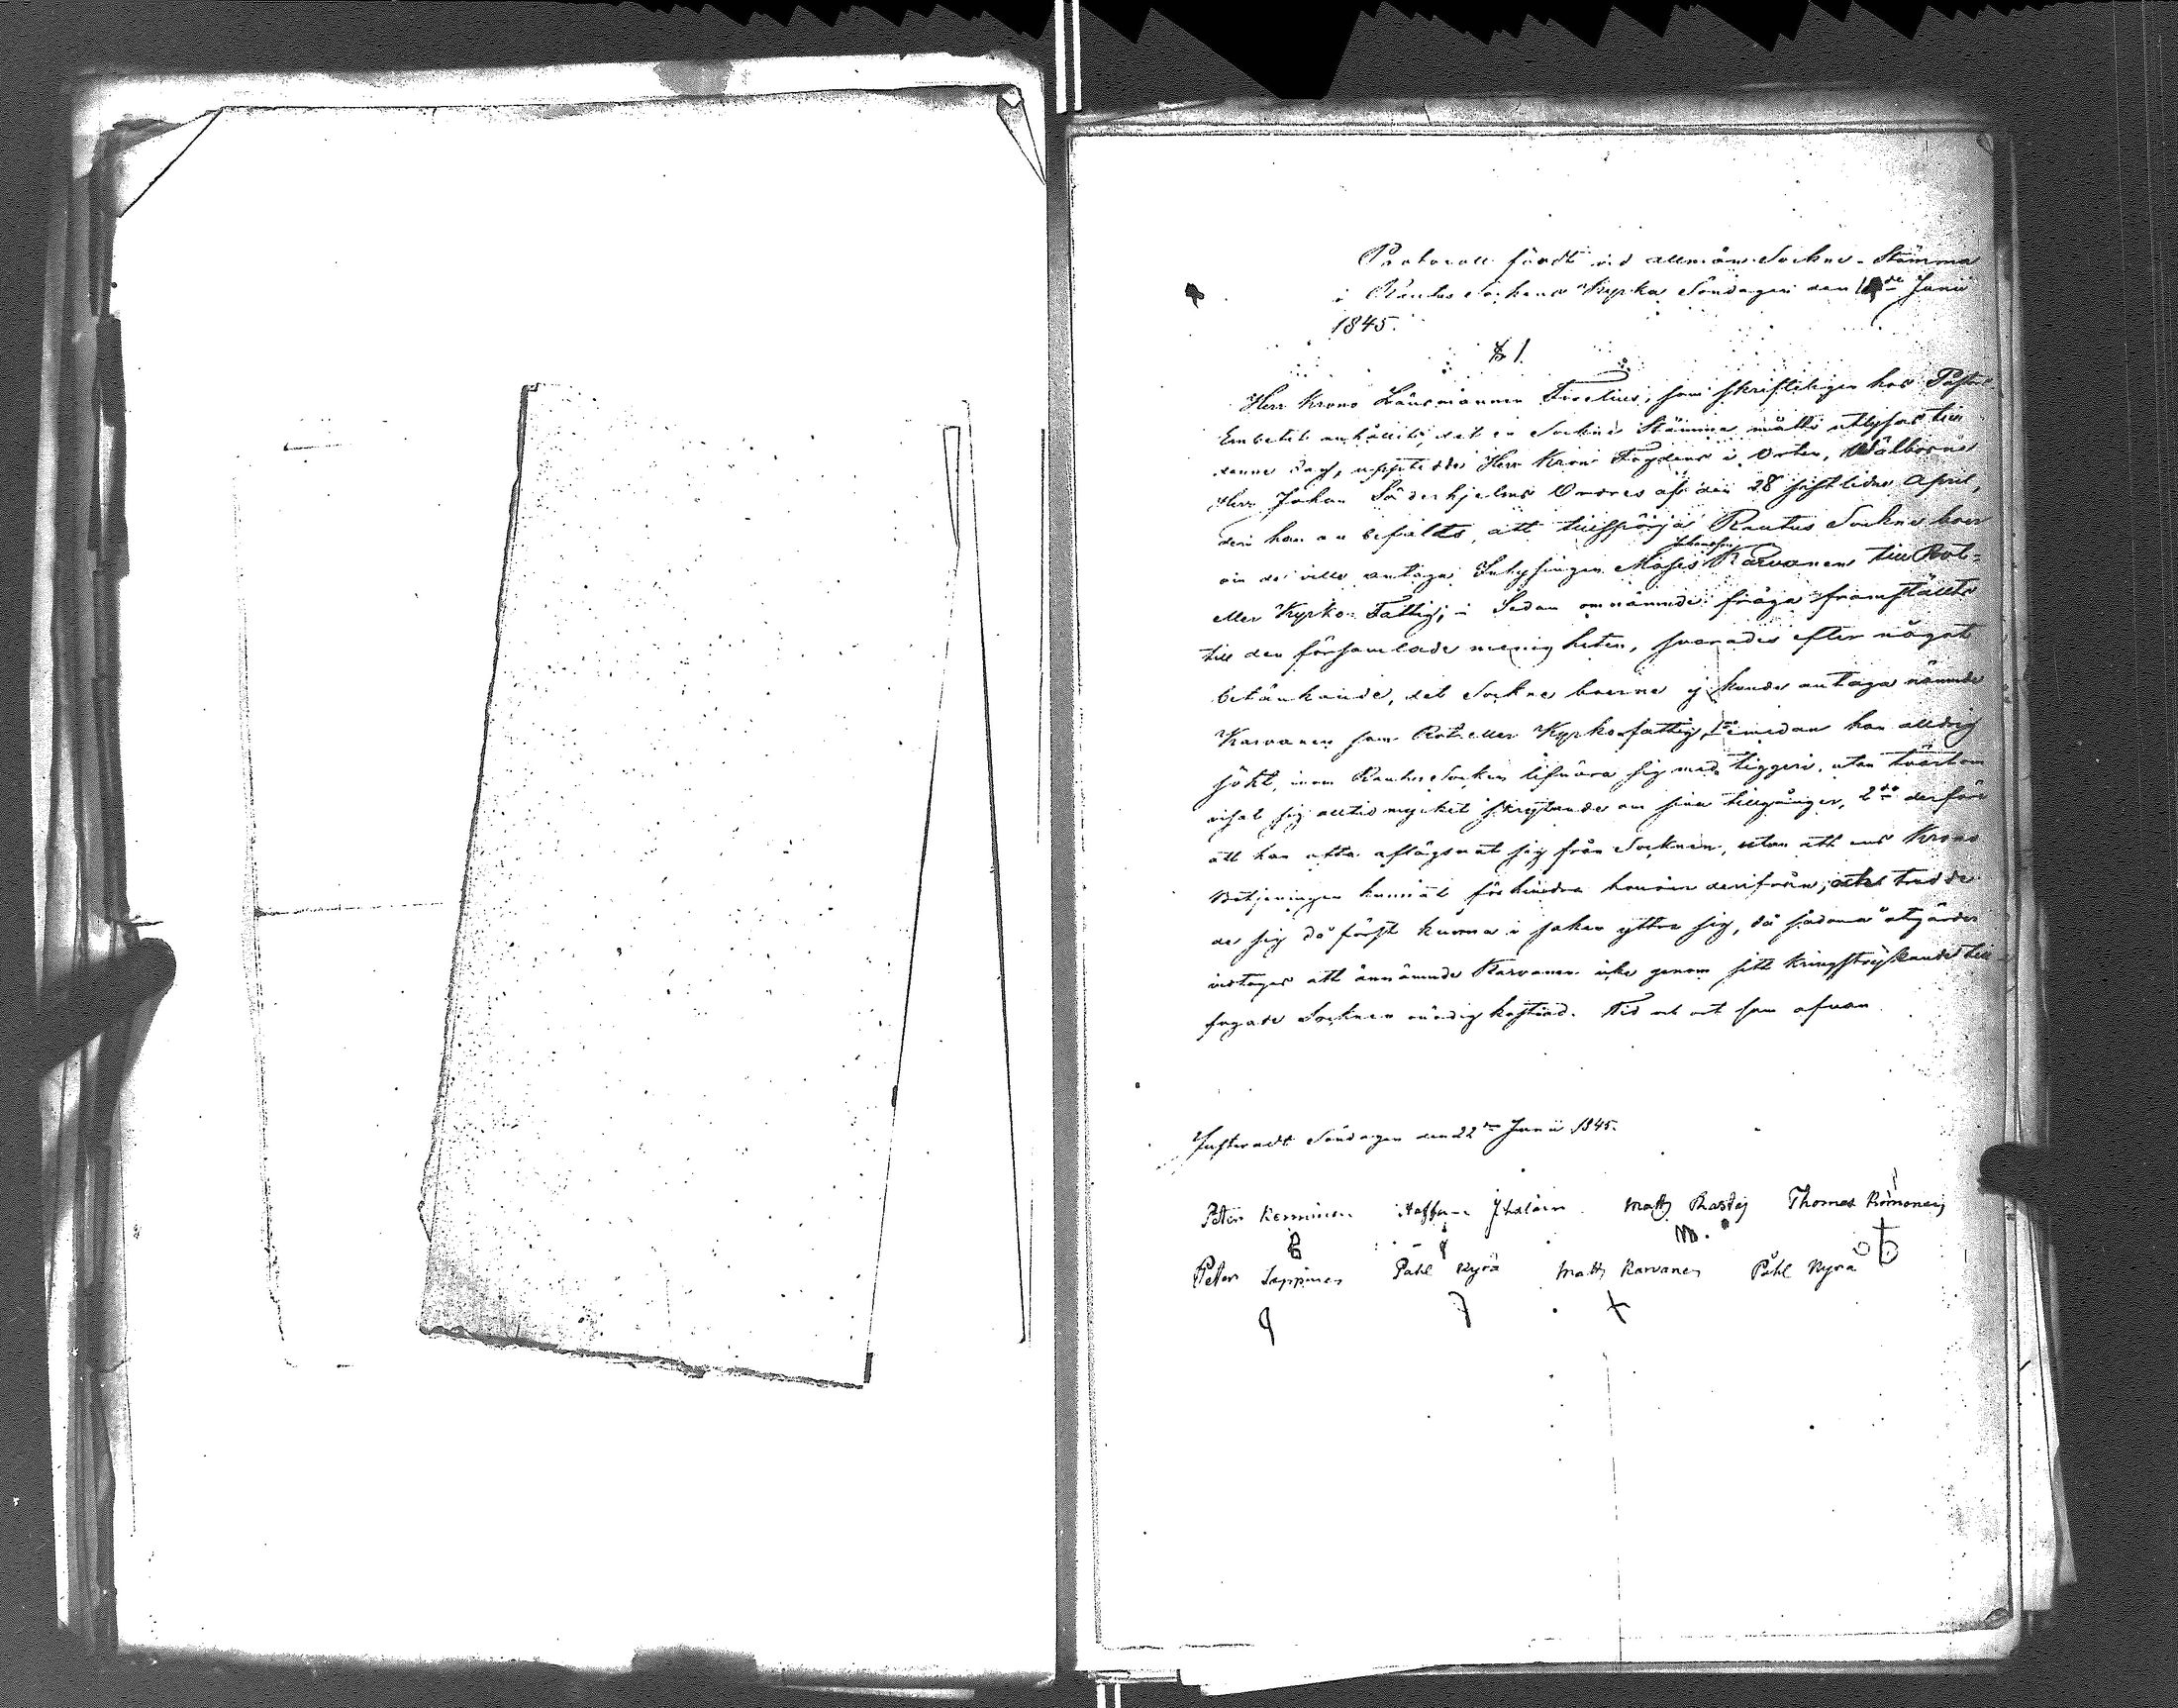 Protocoll fördt vid allmän Sockne-Stämma
i Rautus Sockens Kyrka Söndagen den Junii
1845.
§ 1.
Herr Krono Länsmannen Forelius, som skrifteligen hos Pastors
Embetet anhållit, det en Sockne Stämma måtte utlysas till
denne dag, uppteddes Herr Krono Fogdens i Orten, Välborne
Herr Johan Söderhjelms Ordres af den 28 sistlidne April,
deri han anbefalts, att tillspörja Rautus Sockne boer
om de ville antaga Inhysingen Moses Johansson Karvanen till Rot-
eller Kyrko-Fattig; - Sedan omnämnde fråga framställts
till den församlade menigheten, svarades efter något
betänkande, det Sockne boerne ej kunde antaga nämnde
Karvanen som Rot eller Kyrkofattig, 1mo emedan han alldrig
sökt, inom Rautus Socken lifnära sig med tiggeri, utan tvärtom
visat sig alltid mycket skrytande om sina tillgångar, 2do derföre
att han ofta aflägsnat sig från Socknen, utan att ens Krono
Betjeningen kunnat förhindra honom derifrån; och trodde
de sig då först kunna i saken yttra sig, då sådana åtgärder
vidtagas att ännämnde Karvanen icke genom sitt kringstrykande till
fogade Socknen onödig kostnad. Tid och ort som ofvan.
Justeradt Söndagen den 22dre Junii 1845.
Peter Kemninen Staffan Matts Rastas Thomas Romonen
Peter Lappinen Påhl Kyrä Matts Karvanen Påhl Kyrä